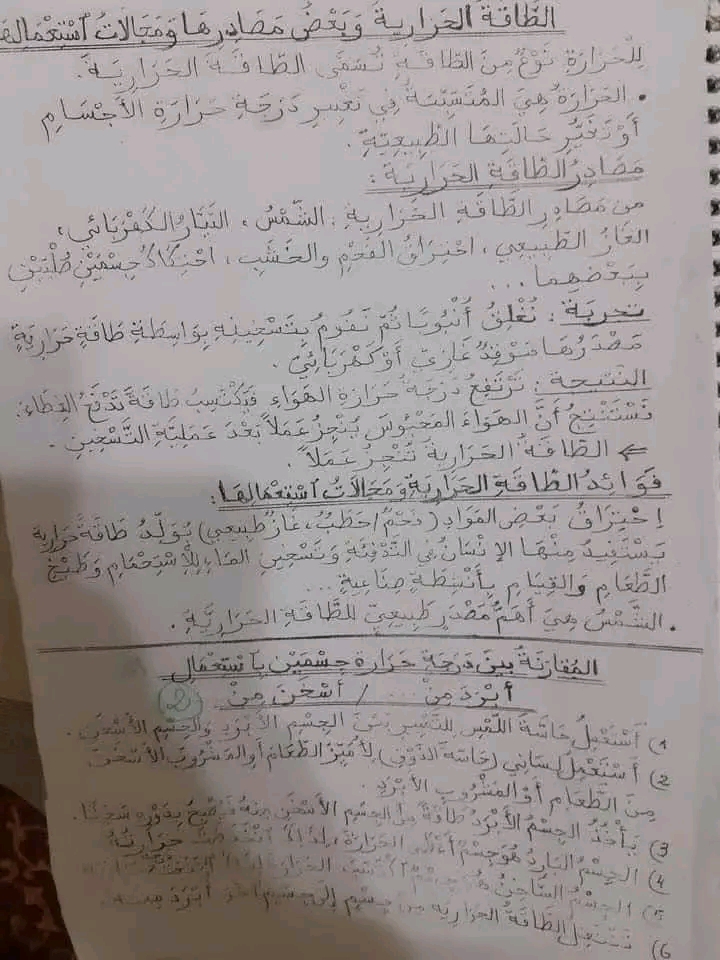 الطَّاقَةُ الحَرَارِيَةُ وَبَعْضُ مَصَادِرِهَا وَمَجَالاَتُ اسْتِعْمَالِهَا
لِلْحَرَارَةِ نَوْعٌ مِنَ الطَّاقَةِ تُسَمَّى الطَّاقَةَ الحَرَارِيَةَ.
• الحَرَارَةُ هِيَ المُتَسَبِّبَةُ فِي تَغْيِيرِ دَرَجَةِ حَرَارَةِ الأَجْسَامِ
أَوْ تَغَيُّرِ حَالَتِهَا الطَّبِيعِيَّةِ.
مَصَادِرُ الطَّاقَةِ الحَرَارِيَةِ:
من مَصَادِرِ الطَّاقَةِ الحَرَارِيَةِ: الشَّمْسُ، التَّيَّارُ الكَهْرَبَائِي،
الغَازُ الطَّبِيعِي، احْتِرَاقُ الفَحْمِ والخَشَبِ، احْتِكَاكُ جِسْمَيْنِ صُلْبَيْنِ
بِبَعْضِهِمَا...
تجربة: نُغْلِقُ أُنْبُوبًا ثُمَّ نَقُومُ بِتَسْخِينِهِ بِوَاسِطَةِ طَاقَةٍ حَرَارِيَةٍ
مَصْدَرُهَا مَوْقِدٌ غَازِيٌّ أَوْ كَهْرَبَائِيٌّ.
النتيجة: تَرْتَفِعُ دَرَجَةُ حَرَارَةِ الهَوَاءِ فَيَكْتَسِبُ طَاقَةً تَدْفَعُ الغِطَاءَ.
نَسْتَنْتِجُ أَنَّ الهَوَاءَ المَحْبُوسَ يُنْجِزُ عَمَلاً بَعْدَ عَمَلِيَّةِ التَّسْخِينِ.
⇐ الطَّاقَةُ الحَرَارِيَةُ تُنْجِزُ عَمَلاً.
فَوَائِدُ الطَّاقَةِ الحَرَارِيَةِ وَمَجَالاَتُ اسْتِعْمَالِهَا:
اِحْتِرَاقُ بَعْضِ المَوَادِ (فَحْم/حَطَب، غاز طبيعي) يُوَلِّدُ طَاقَةً حَرَارِيَة
يَسْتَفِيدُ مِنْهَا الإِنْسَانُ في التَّدْفِئَةِ وَتَسْخِينِ المَاءِ لِلْاسْتِحْمَامِ وَطَبْخِ
الطَّعَامِ وَالقِيَامِ بِأَنْشِطَةٍ صِنَاعِيَةٍ...
• الشَّمْسُ هِيَ أَهَمُّ مَصْدَرٍ طَبِيعِيٍّ لِلطَّاقَةِ الحَرَارِيَّةِ.
المُقَارَنَةُ بين دَرَجَةِ حَرَارَةِ جِسْمَيْنِ بِاسْتِعْمَالِ
أَبْرَدَ مِنْ ... / أَسْخَنَ مِنْ ② ..
1) أَسْتَعْمِلُ حَاسَّةَ اللَّمْسِ لِلتَّمْيِيزِ بَيْنَ الجِسْمِ الأَبْرَدِ وَالجِسْمِ الأَسْخَنِ.
2) أَسْتَعْمِلُ لِسَانِي (حَاسَّةَ الذَّوْقِ) لِأُمَيِّزَ الطَّعَامَ أو المَشْرُوبَ الأَسْخَنَ
مِنَ الطَّعَامِ أَوْ المَشْرُوبِ الأَبْرَدِ.
3) يَأْخُذُ الجِسْمُ الأَبْرَدُ طَاقَةً مِنَ الجِسْمِ الأَسْخَنِ مِنْهُ فَيُصْبِحُ بِدَوْرِهِ سَاخِنًا.
4) الجِسْمُ البَارِدُ هُوَ جِسْمٌ أَعْطَى الحَرَارَةَ، لِذَا انْخَفَضَتْ حَرَارَتُهُ
5) الجِسْمُ السَّاخِنُ هُوَ جِسْمٌ اكْتَسَبَ الحَرَارَةَ لِذَا
6) تَنْتَقِلُ الطَّاقَةُ الحَرَارِيَة مِنْ جِسْمٍ إِلَى جِسْمٍ آخَرَ أَبْرَدَ مِنْهُ.